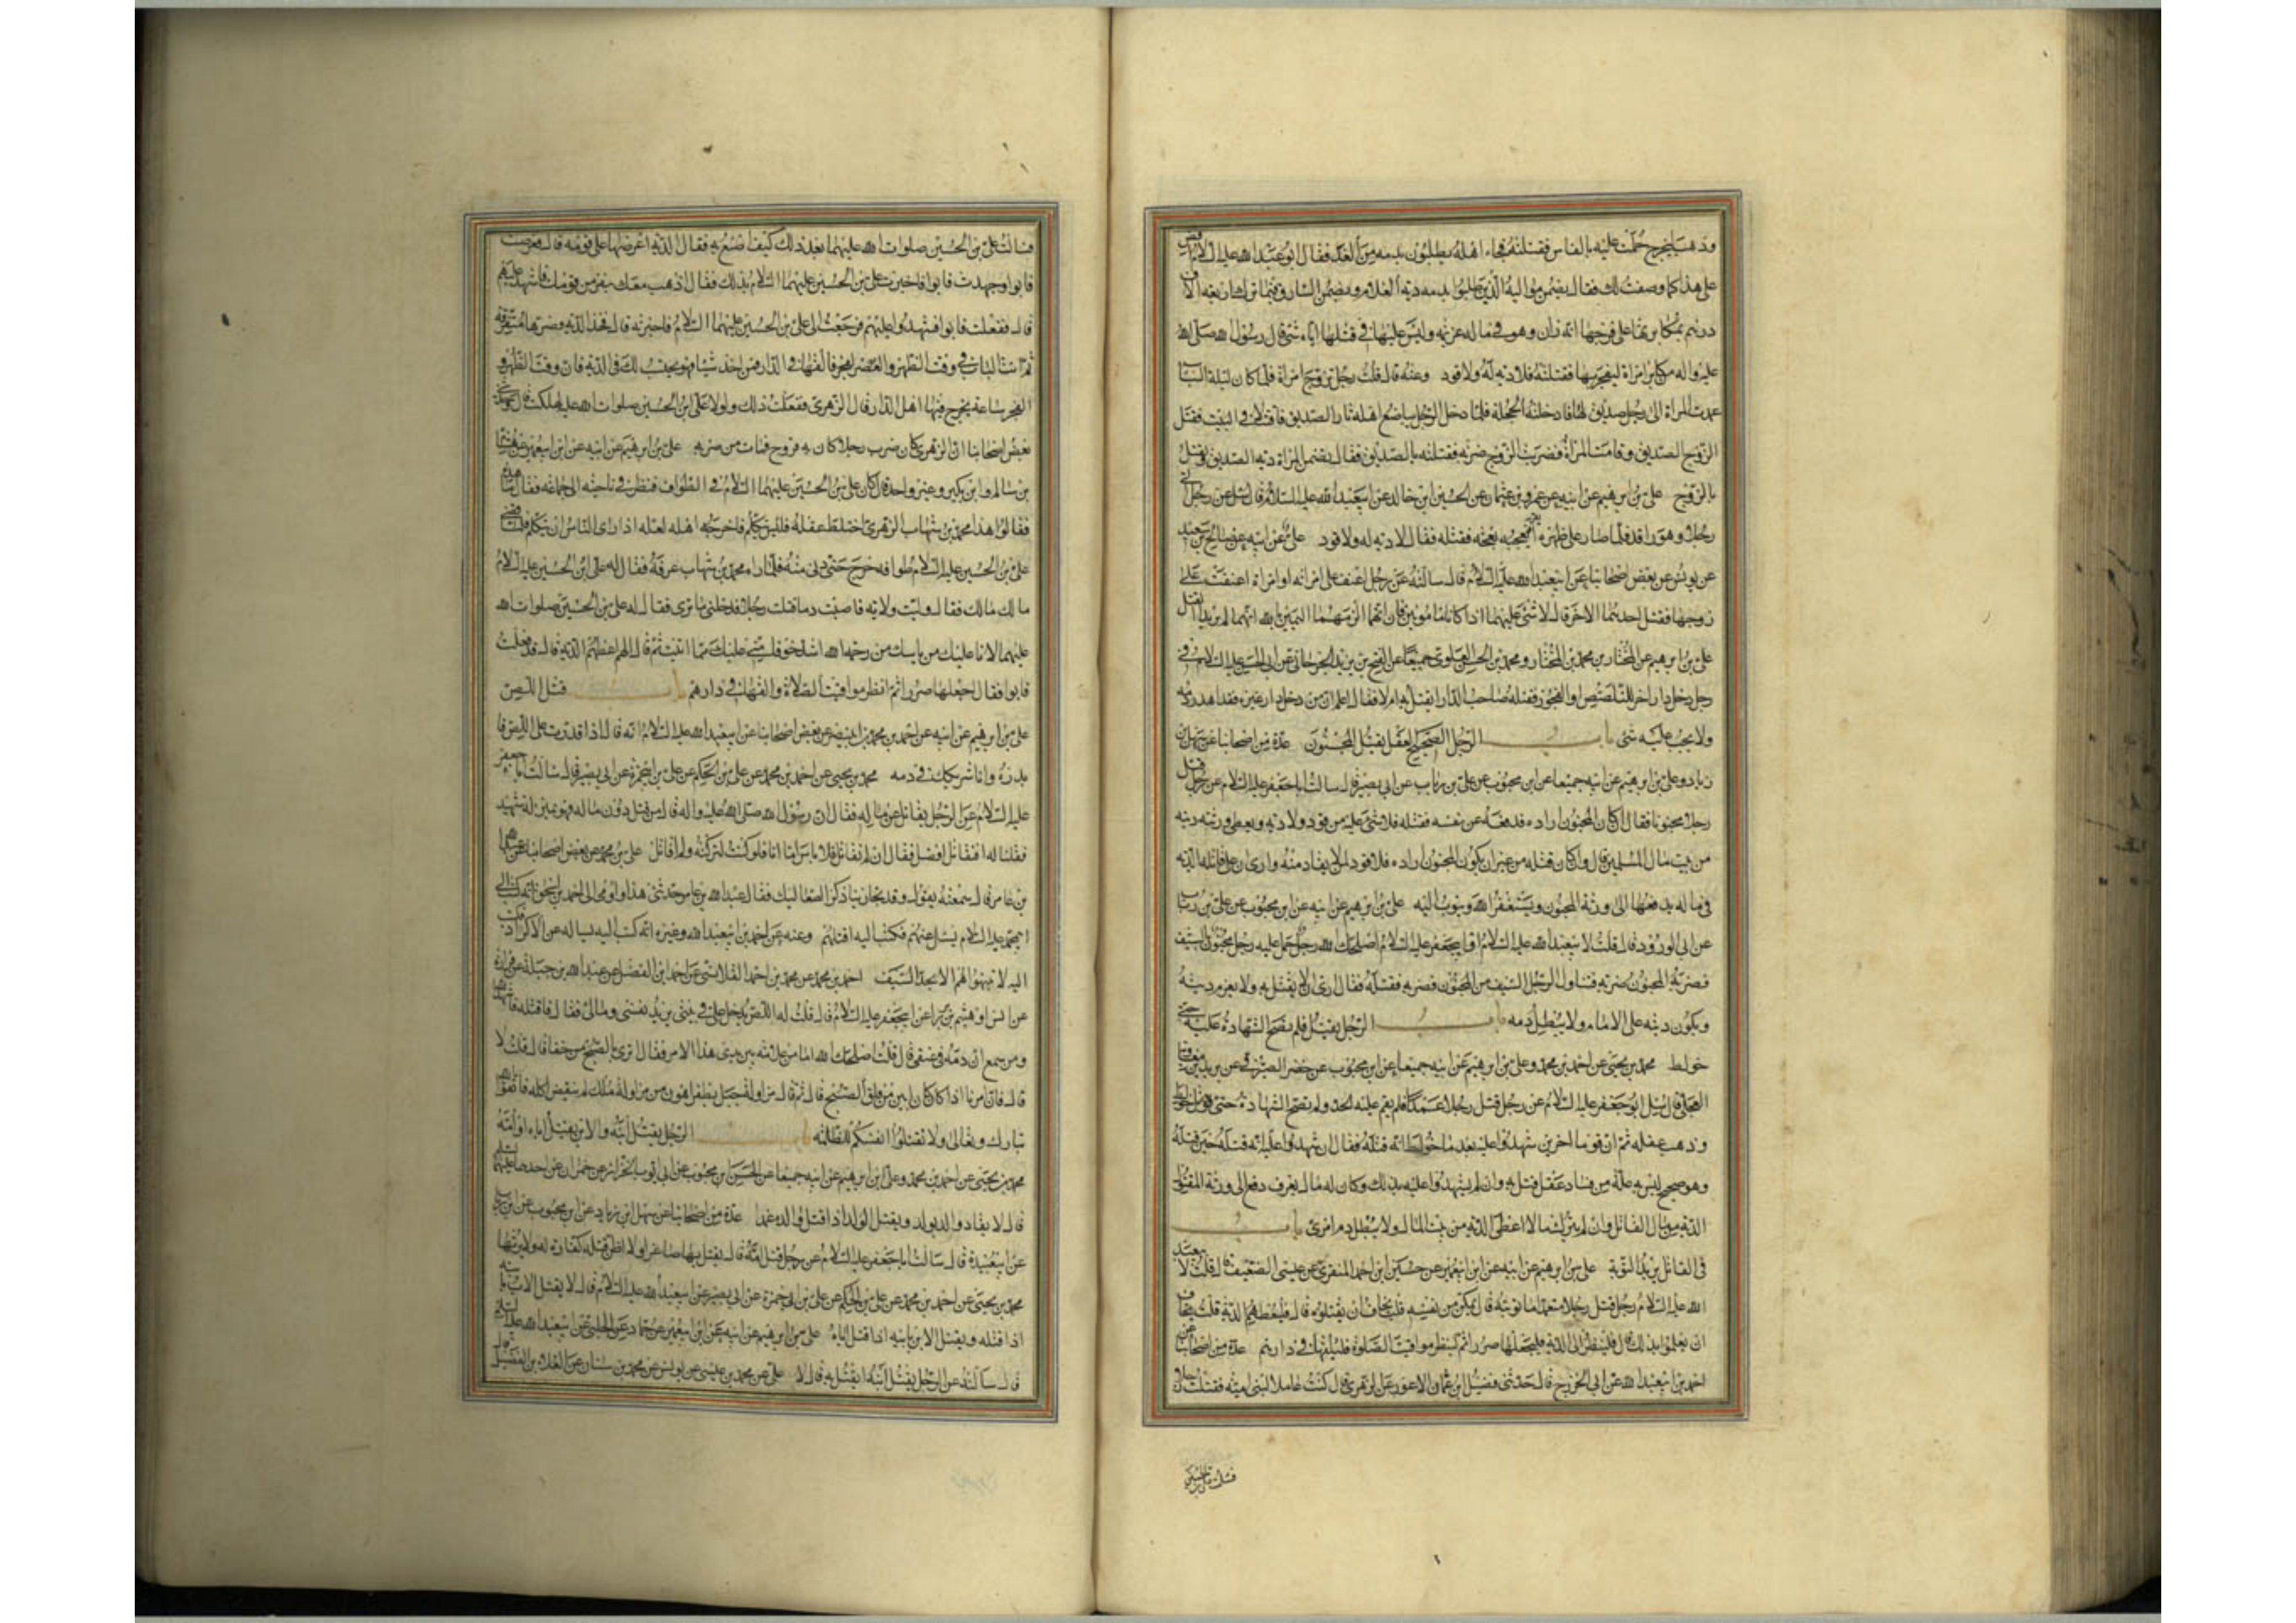 وذهب ليخرج حملت عليه بالفاس فقتلته فجاء اهله يطلبون بدمه من الغد فقال ابو عبد الله عليه السلام اقض
على هذا كما وصفت لك فقال يضمن مواليه الذين طلبوا بدمه دية الغلام ويضمن السارق فيما ترك اربعة الاف
درهم بمكابرتها على فرجها انه زان وهو في ماله عزيمة وليس عليها في قتلها اياه شئ قال رسول الله صلى الله
عليه واله من كابر امراة ليفجر بها فقتلته فلا دية له ولا قود وعنه قال قلت رجل تزوج امراة فلما كان ليلة البنا
عمدت المراة الى رجل صديق لها فادخلته الحجلة فلما دخل الرجل يباضع اهله ثار الصديق فاقتتلا في البيت فقتل
الزوج الصديق وقامت المراة فضربت الزوج ضربة فقتلته بالصديق فقال يضمن المراة دية الصديق وتقتل
بالزوج علي بن ابرهيم عن ابيه عن عمرو بن عثمان عن الحسين ابن خالد عن ابي عبد الله عليه السلام قال سئل عن رجل اتى
رجلا وهو راقد فلما صار على ظهره فبعجه بعجة فقتله فقال لا دية له ولا قود علي عن ابيه عن صالح بن سعيد
عن يونس عن بعض اصحابنا عن ابي عبد الله عليه السلام قال سالته عن رجل اعنف على امراته او امراة اعنفت على
زوجها فقتل احدهما الاخر قال لا شئ عليهما اذا كانا مامونين فان اتهما الزمهما اليمين بالله انهما لم يريدا القتل
علي بن ابرهيم عن المختار بن محمد بن المختار ومحمد بن الحسن العلوي جميعا عن الفتح بن يزيد الجرجاني عن ابي الحسن عليه السلام في
رجل دخل دار اخر للتلصص او الفجور فقتله صاحب الدار ايقتل به ام لا فقال اعلم ان من دخل دار غيره فقد اهدر دمه
ولا يجب عليه شئ باب الرجل الصحيح العقل يقتل المجنون عدة من اصحابنا عن سهل بن
زياد وعلي بن ابرهيم عن ابيه جميعا عن ابن محبوب عن علي بن رئاب عن ابي بصير قال سالت ابا جعفر عليه السلام عن رجل قتل
رجلا مجنونا فقال ان كان المجنون اراده فدفعه عن نفسه فقتله فلا شئ عليه من قود ولا دية ويعطى ورثته ديته
من بيت مال المسلمين قال وان كان قتله من غير ان يكون المجنون اراده فلا قود لمن لا يقاد منه وارى ان على قاتله الدية
في ماله يدفعها الى ورثة المجنون ويستغفر الله ويتوب اليه علي بن ابرهيم عن ابيه عن ابن محبوب عن علي بن رئاب
عن ابي الورد قال قلت لابي عبد الله عليه السلام او ابي جعفر عليه السلام اصلحك الله رجل حمل عليه رجل مجنون بالسيف
فضربه المجنون ضربة فتناول الرجل السيف من المجنون فضربه فقتله فقال ارى ان لا يقتل به ولا يغرم ديته
ويكون ديته على الامام ولا يبطل دمه باب الرجل يقتل فلم تصح الشهادة عليه حتى
خولط محمد بن يحيى عن احمد بن محمد وعلي بن ابرهيم عن ابيه جميعا عن ابن محبوب عن خضر الصيرفي عن بريد بن معوية
العجلي قال سئل ابو جعفر عليه السلام عن رجل قتل رجلا عمدا فلم يقم عليه الحد ولم تصح الشهادة حتى خولط
وذهب عقله ثم ان قوما اخرين شهدوا عليه بعد ما خولط انه قتله فقال ان شهدوا عليه انه قتله حين قتله
وهو صحيح ليس به علة من فساد عقل قتل به وان لم يشهدوا عليه بذلك وكان له مال يعرف دفع الى ورثة المقتول
الدية من مال القاتل وان لم يترك مالا اعطى الدية من بيت المال ولا يبطل دم امرئ باب
في القاتل يريد التوبة علي بن ابرهيم عن ابيه عن ابن ابي عمير عن حسين ابن احمد المنقري عن عيسى الضعيف قال قلت لابي عبد
الله عليه السلام رجل قتل رجلا متعمدا ما توبته قال يمكن من نفسه قلت يخاف ان يقتلوه قال فليعطهم الدية قلت يخاف
ان يعلموا بذلك قال فلينظر الى الدية فليجعلها صررا ثم لينظر مواقيت الصلوة فليلقها في دارهم عدة من اصحابنا عن
احمد بن ابي عبد الله عن ابي الخزرج قال حدثني فضيل ابن عثمان الاعور عن الزهري قال كنت عاملا لبني امية فقتلت رجلا
فسالت علي بن الحسين
فسالت علي بن الحسين صلوات الله عليهما بعد ذلك كيف اصنع به فقال الدية اعرضها على قومه قال فعرضت
فابوا وجهدت فابوا فاخبرت علي بن الحسين عليهما السلام بذلك فقال اذهب معك بنفر من قومك فاشهد عليهم
قال ففعلت فابوا فشهدوا عليهم فرجعت الى علي بن الحسين عليهما السلام فاخبرته قال فخذ الدية وصرها متفرقة
ثم ائت الباب في وقت الظهر والعصر او الفجر فالقها في الدار فمن اخذ شيئا فهو يحسب لك في الدية فان وقت الظهر و
الفجر ساعة يخرج فيها اهل الدار قال الزهري ففعلت ذلك ولولا علي ابن الحسين صلوات الله عليه لهلكت قال وحدثني
بعض اصحابنا ان الزهري كان ضرب رجلا كان به قروح فمات من ضربه علي بن ابرهيم عن ابيه عن ابن ابي عمير عن هشام
بن سالم وابن بكير وغير واحد قال كان علي بن الحسين عليهما السلام في الطواف فنظر في ناحية الى جماعة فقال ما هذه
فقالوا هذا محمد بن شهاب الزهري اختلط عقله فليس يتكلم فاخرجه اهله لعله اذا راى الناس ان يتكلم فلما قضى
علي بن الحسين عليه السلام طوافه خرج حتى دنى منه فلما راه محمد بن شهاب عرفه فقال له علي ابن الحسين عليه السلام
مالك مالك فقال وليت ولاية فاصبت دما قتلت رجلا فدخلني ما ترى فقال له علي بن الحسين صلوات الله
عليهما لانا عليك من ياسك من رحمة الله اشد خوفا مني عليك مما اتيت ثم قال له اعطهم الدية قال قد فعلت
فابوا فقال اجعلها صررا ثم انظر مواقيت الصلاة والقها في دارهم باب قتل اللص
علي بن ابرهيم عن ابيه عن احمد بن محمد بن ابي نصر عن بعض اصحابنا عن ابي عبد الله عليه السلام انه قال اذا قدرت على اللص فا
بدره وانا شريكك في دمه محمد بن يحيى عن احمد بن محمد عن علي بن الحكم عن علي بن ابي حمزة عن ابي بصير قال سالت ابا جعفر
عليه السلام عن الرجل يقاتل عن ماله فقال ان رسول الله صلى الله عليه واله قال من قتل دون ماله فهو بمنزلة شهيد
فقلنا له افنقاتل افضل فقال ان لم تقاتل فلا باس اما انا فلو كنت لتركته ولم اقاتل علي بن محمد عن بعض اصحابنا عن عبد الله
بن عامر قال سمعته يقول وقد تجارينا ذكر الصعاليك فقال عبد الله بن عامر حدثني هذا واومى الى احمد بن اسحق انه كتب الى
ابي محمد عليه السلام يسئل عنهم فكتب اليه اقتلهم وعنه عن احمد بن ابي عبد الله وغيره انه كتب اليه يساله عن الاكراد فكتب
اليه لا تنبهوا لهم الا بحد السيف احمد بن محمد عن محمد بن احمد القلانسي عن احمد ابن الفضل عن عبد الله بن جبلة عن فزارة
عن انس او هيثم بن برا عن ابي جعفر عليه السلام قال قلت له اللص يدخل علي في بيتي يريد نفسي ومالي فقال فاقتله فاشهد الله
ومن سمع ان دمه في عنقي قال قلت اصلحك الله اما من علامة بين يدي هذا الامر فقال ترى بالصبح من خفا قال قلت لا
قال فان امرنا اذا كان كان ابين من فلق الصبح قال ثم قال مزاولة جبل بظفر اهون من مزاولة ملك لم ينقض اكله فاتقوا الله
تبارك وتعالى ولا تقتلوا انفسكم للظلمة باب الرجل يقتل ابنه والابن يقتل اباه او امه
محمد بن يحيى عن احمد بن محمد وعلي ابن ابرهيم عن ابيه جميعا عن الحسن ابن محبوب عن ابي ايوب الخزاز عن حمران عن احدهما عليهما السلم
قال لا يقاد والد بولد ويقتل الولد اذا قتل والده عمدا عدة من اصحابنا عن سهل ابن زياد عن ابن محبوب عن ابن رئاب
عن ابي عبيدة قال سالت ابا جعفر عليه السلام عن رجل قتل امه قال يقتل بها صاغرا ولا اظن قتله كفارة له ولا يرثها
محمد بن يحيى عن احمد بن محمد عن علي بن الحكم عن علي بن ابي حمزة عن ابي بصير عن ابي عبد الله عليه السلام قال لا يقتل الاب بابنه
اذا قتله ويقتل الابن بابيه اذا قتل اباه علي بن ابرهيم عن ابيه عن ابن ابي عمير عن حماد عن الحلبي عن ابي عبد الله عليه السلم
قال سالته عن الرجل يقتل ابنه ايقتل به قال لا علي عن محمد بن عيسى عن يونس عن محمد بن سنان عن العلاء بن الفضيل قال